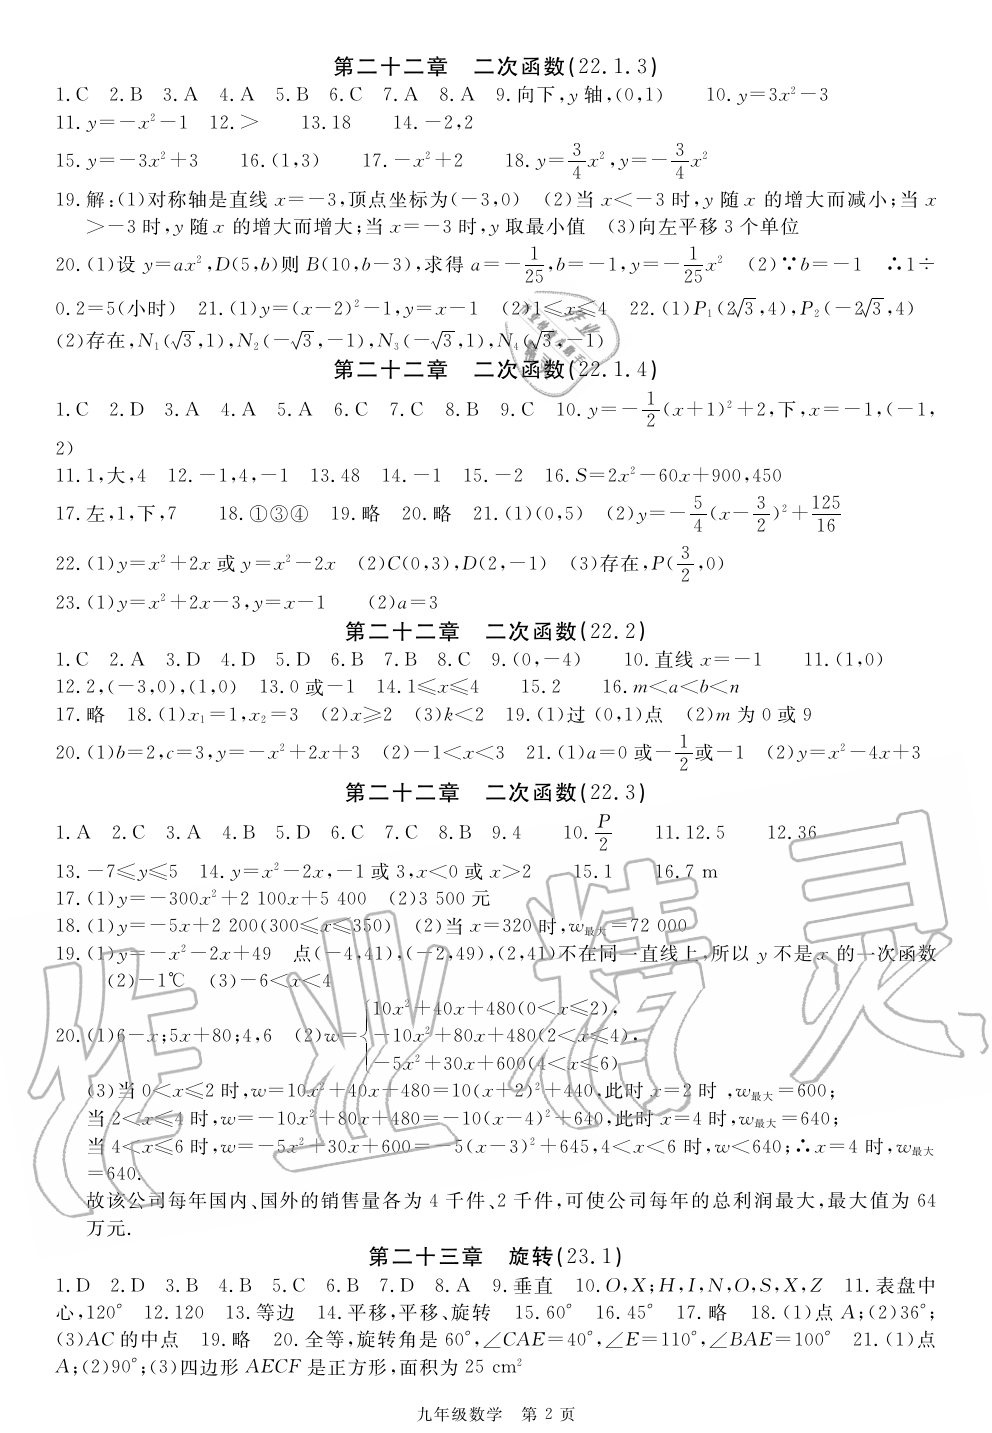 第二十二章　二次函数(22.1.3)
1.C 2.B 3.A 4.A 5.B 6.C 7.A 8.A 9.向下,y轴,(0,1) 10.y=3x²-3
11.y=-x²-1 12.> 13.18 14.-2,2
15.y=-3x²+3 16.(1,3) 17.-x²+2 18.y=3/4x²,y=-3/4x²
19.解:(1)对称轴是直线x=-3,顶点坐标为(-3,0) (2)当x<-3时,y随x的增大而减小;当x
>-3时,y随x的增大而增大;当x=-3时,y取最小值 (3)向左平移3个单位
20.(1)设y=ax²,D(5,b)则B(10,b-3),求得a=-1/25,b=-1,y=-1/25x² (2)∵b=-1 ∴1÷
0.2=5(小时) 21.(1)y=(x-2)²-1,y=x-1 (2)1≤x≤4 22.(1)P₁(2√3,4),P₂(-2√3,4)
(2)存在,N₁(√3,1),N₂(-√3,-1),N₃(-√3,1),N₄(√3,-1)
第二十二章　二次函数(22.1.4)
1.C 2.D 3.A 4.A 5.A 6.C 7.C 8.B 9.C 10.y=-1/2(x+1)²+2,下,x=-1,(-1,
2)
11.1,大,4 12.-1,4,-1 13.48 14.-1 15.-2 16.S=2x²-60x+900,450
17.左,1,下,7 18.①③④ 19.略 20.略 21.(1)(0,5) (2)y=-5/4(x-3/2)²+125/16
22.(1)y=x²+2x或y=x²-2x (2)C(0,3),D(2,-1) (3)存在,P(3/2,0)
23.(1)y=x²+2x-3,y=x-1 (2)a=3
第二十二章　二次函数(22.2)
1.C 2.A 3.D 4.D 5.D 6.B 7.B 8.C 9.(0,-4) 10.直线x=-1 11.(1,0)
12.2,(-3,0),(1,0) 13.0或-1 14.1≤x≤4 15.2 16.m<a<b<n
17.略 18.(1)x₁=1,x₂=3 (2)x≥2 (3)k<2 19.(1)过(0,1)点 (2)m为0或9
20.(1)b=2,c=3,y=-x²+2x+3 (2)-1<x<3 21.(1)a=0或-1/2或-1 (2)y=x²-4x+3
第二十二章　二次函数(22.3)
1.A 2.C 3.A 4.B 5.D 6.C 7.C 8.B 9.4 10.P/2 11.12.5 12.36
13.-7≤y≤5 14.y=x²-2x,-1或3,x<0或x>2 15.1 16.7 m
17.(1)y=-300x²+2 100x+5 400 (2)3 500元
18.(1)y=-5x+2 200(300≤x≤350) (2)当x=320时,w最大=72 000
19.(1)y=-x²-2x+49 点(-4,41),(-2,49),(2,41)不在同一直线上,所以y不是x的一次函数
(2)-1℃ (3)-6<x<4
20.(1)6-x;5x+80;4,6 (2)w={10x²+40x+480(0<x≤2),
-10x²+80x+480(2<x≤4),
-5x²+30x+600(4<x≤6)
(3)当0<x≤2时,w=10x²+40x+480=10(x+2)²+440,此时x=2时,w最大=600;
当2<x≤4时,w=-10x²+80x+480=-10(x-4)²+640,此时x=4时,w最大=640;
当4<x≤6时,w=-5x²+30x+600=-5(x-3)²+645,4<x<6时,w<640;∴x=4时,w最大
=640.
故该公司每年国内、国外的销售量各为4千件、2千件,可使公司每年的总利润最大,最大值为64
万元.
第二十三章　旋转(23.1)
1.D 2.D 3.B 4.B 5.C 6.B 7.D 8.A 9.垂直 10.O,X;H,I,N,O,S,X,Z 11.表盘中
心,120° 12.120 13.等边 14.平移,平移、旋转 15.60° 16.45° 17.略 18.(1)点A;(2)36°;
(3)AC的中点 19.略 20.全等,旋转角是60°,∠CAE=40°,∠E=110°,∠BAE=100° 21.(1)点
A;(2)90°;(3)四边形AECF是正方形,面积为25 cm²
九年级数学　第2页
作业精灵